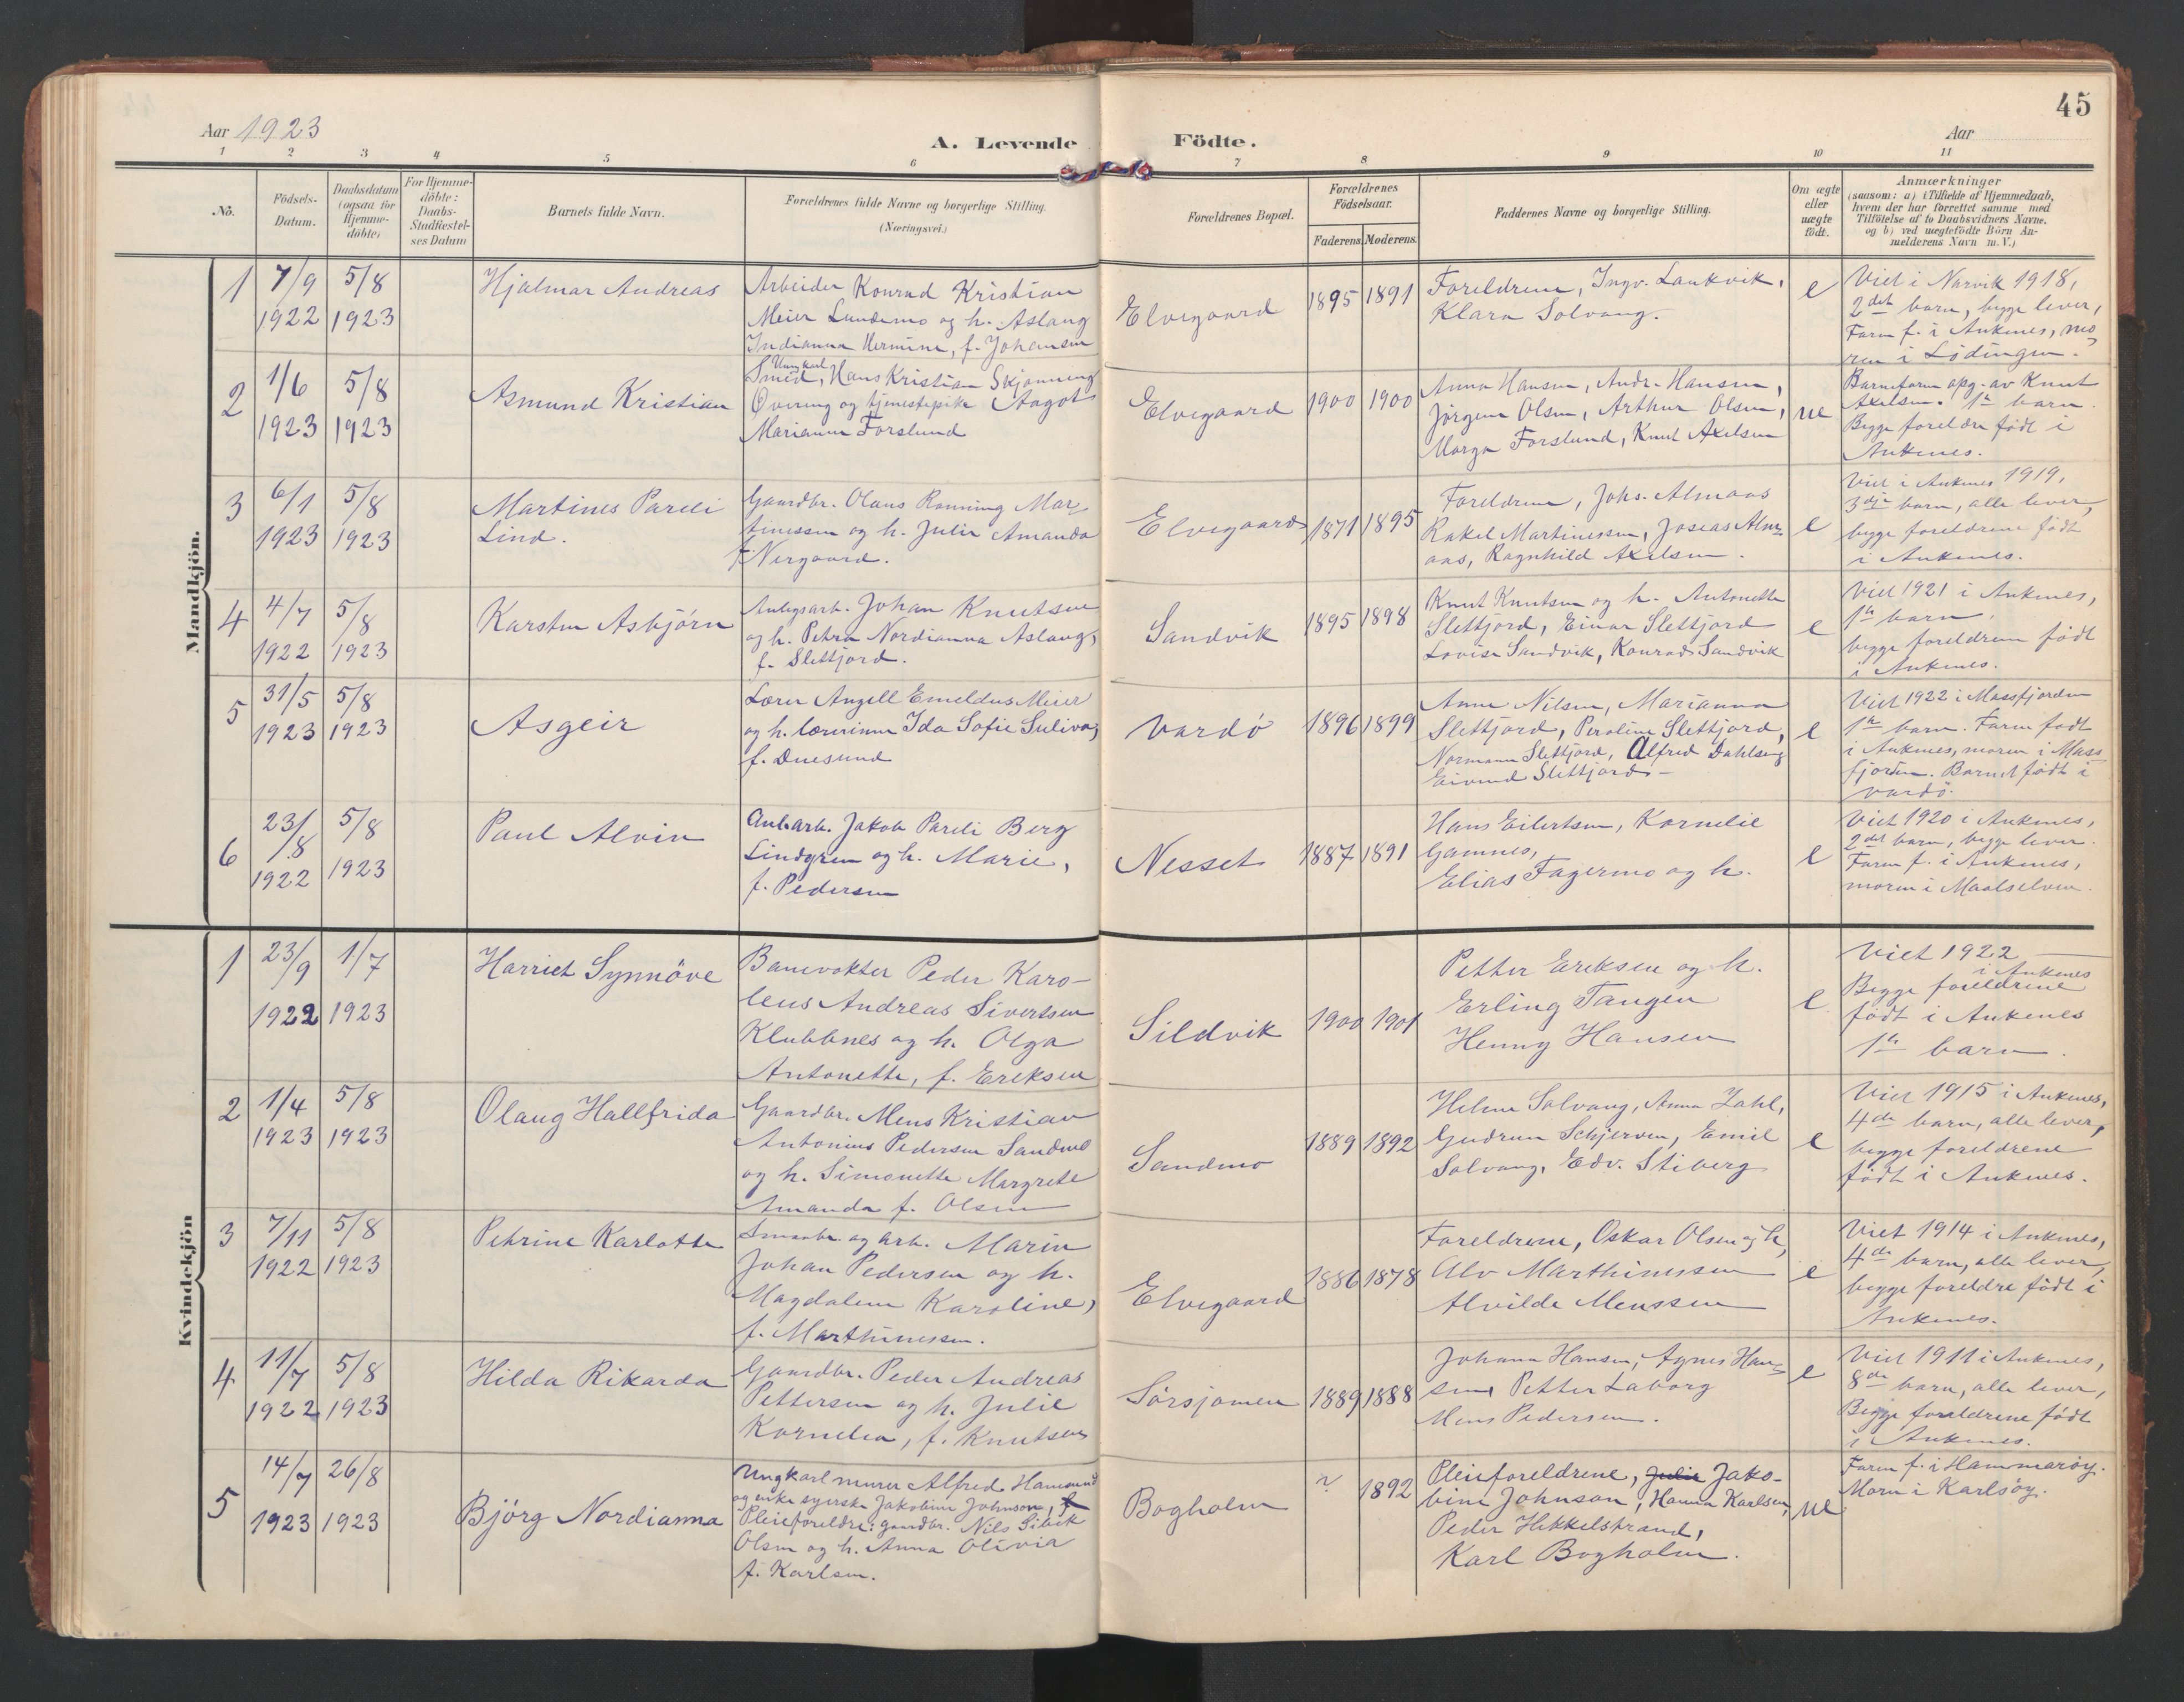 45
Aar 1923
A. Levende Födte.
Aar
1 2 3 4 5 6 7 8 9 10 11
No.
Födsels-
Datum.
Daabsdatum
(ogsaa for
Hjemme-
döbte)
For Hjemme-
döbte:
Daabs-
Stadfæstel-
ses Datum
Barnets fulde Navn.
Forældrenes fulde Navne og borgerlige Stilling.
(Næringsvei.)
Forældrenes Bopæl.
Forældrenes
Födselsaar.
Faderens. Moderens.
Faddernes Navne og borgerlige Stilling.
Om ægte
eller
uægte
födt.
Anmærkninger
(saasom: a) i Tilfælde af Hjemmedaab,
hvem der har forrettet samme med
Tilföielse af to Daabsvidners Navne.
og b) ved uægtefödte Börn An-
melderens Navn m. V.)
Mandkjön.
1
7/9
1922
5/8
1923
Hjalmar Andreas
Arbeider Konrad Kristian
Meier Lundemo og h. Aslaug
Indianna Hermine, f. Johansen
Elvegaard
1895 1891
Foreldrene, Ingv. Lankvik,
Klara Solvang.
e
Viet i Narvik 1918,
2det barn, begge lever,
Faren f. i Ankenes, mo-
ren i Lødingen.
2
1/6
1923
5/8
1923
Asmund Kristian
Ungkarl
Smed, Hans Kristian Skjønning
Overeng og tjenestepike Aagot
Marianne Forslund
Elvegaard
1900 1900
Anna Hansen, Andr. Hansen,
Jörgine Olsen, Arthur Olsen,
Marga Forslund, Knut Axelsen
ue
Barnefaren opg. av Knut
Axelsen. 1te barn.
Begge foreldre født i
Ankenes.
3
6/1
1923
5/8
1923
Martines Pareli
Lind.
Gaardbr. Olaus Rønning Mar-
tinessen og h. Julie Amanda
f. Nergaard.
Elvegaard
1871 1895
Foreldrene, Johs. Almaas
Rakel Martinessen, Joseas Alm-
aas, Ragnhild Axelsen.
e
Viet i Ankenes 1919,
3dje barn, alle lever,
begge foreldrene født
i Ankenes.
4
4/7
1922
5/8
1923
Karsten Asbjørn
Anlegsarb. Johan Knutsen
og h. Petra Nordianna Aslaug,
f. Slettjord.
Sandvik
1895 1898
Knut Knutsen og h. Antonette
Slettjord, Einar Slettjord
Lovise Sandvik, Konrad Sandvik
e
Viet 1921 i Ankenes,
1te barn,
begge foreldrene født
i Ankenes.
5
31/5
1923
5/8
1923
Asgeir
Lærer Angell Emeldus Meier
og h. lærerinne Ida Sofie Suliva,
f. Duesund
Vardö
1896 1899
Anne Nilsen, Marianna
Slettjord, Peroline Slettjord,
Normann Slettjord, Alfred Dahlseng
Eivind Slettjord
e
Viet 1922 i Masfjorden
1te barn. Faren født
i Ankenes, moren i Mas-
fjorden. Barnet født i
Vardö.
6
23/8
1922
5/8
1923
Paul Alvin
Anl.arb. Jakob Pareli Berg
Lindgren og h. Marie,
f. Pedersen
Nesset
1887 1891
Hans Eilertsen, Kornelie
Gamnes,
Elias Fagermo og h.
e
Viet 1920 i Ankenes,
2det barn, begge lever.
Faren f. i Ankenes,
moren i Maalselven.
Kvindekjön
1
23/9
1922
1/7
1923
Harriet Synnöve
Banevokter Peder Karo-
leus Andreas Sivertsen
Klubbnes og h. Olga
Antonette, f. Ereksen
Sildvik
1900 1901
Petter Ereksen og h.
Erling Tangen
Henny Hansen
e
Viet 1922
i Ankenes
Begge foreldrene
født i Ankenes
1te barn.
2
1/4
1923
5/8
1923
Olaug Hallfrida
Gaardbr. Mens Kristian
Antonius Pedersen Sandmo
og h. Simonette Margrete
Amanda f. Olsen
Sandmo
1889 1892
Helene Solvang, Anna Zahl,
Gudrun Schjerven, Emil
Solvang, Edv. Stiberg
e
Viet 1915 i Ankenes,
4de barn, alle lever,
begge foreldrene
født i Ankenes.
3
7/11
1922
5/8
1923
Petrine Karlotte
Smaabr. og arb. Marin
Johan Pedersen og h.
Magdalene Karoline,
f. Marthinessen.
Elvegaard
1886 1878
Foreldrene, Oskar Olsen og h,
Alv Marthinessen
Alvilde Menssen
e
Viet 1914 i Ankenes,
4de barn, alle lever,
begge foreldre født i
Ankenes.
4
11/7
1922
5/8
1923
Hilda Rikarda
Gaardbr. Peder Andreas
Pettersen og h. Julie
Kornelia, f. Knutsen
Sørsjomen
1889 1888
Johanna Hansen, Agnes Han-
sen, Petter Laborg
Mens Pedersen.
e
Viet 1911 i Ankenes,
8de barn, alle lever,
Begge foreldrene født
i Ankenes.
5
14/7
1923
26/8
1923
Bjørg Nordianna
Ungkarl murer Alfred Hamsund
og enke syerske Jakobine Johnson,
Pleieforeldre: gaardbr. Nils Sibek
Olsen og h. Anna Olivia
f. Karlsen.
Bogholm
? 1892
Pleieforeldrene, Julie Jako-
bine Johnson, Hanna Karlsen,
Peder Hekkelstrand,
Karl Bogholm.
ue
Faren f. i Hammarøy.
Moren i Karlsøy.